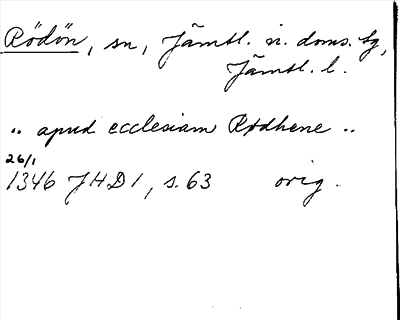 Rödön, sn, Jämtl. v. doms. tg,
Jämtl. l.
.. apud ecclesiam Rødhene ..
26/1
1346 JHD 1, s. 63 orig.